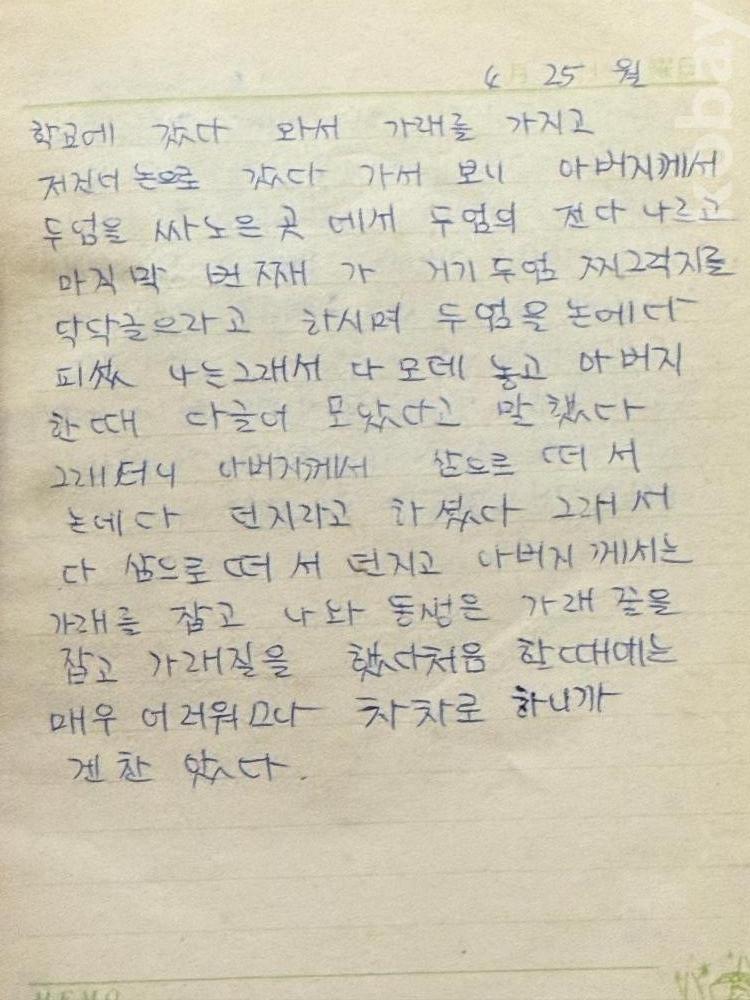 4 月 25 월 曜日
학교에 갔다 와서 가래를 가지고
저건너 논으로 갔다 가서 보니 아버지께서
두엄을 싸노은 곳 에서 두엄의 전다 나르고
마지막 번째 가 거기 두엄 찌그럭지를
닥닥글으라고 하시며 두엄을 논에다
피셨 나는그래서 다 모데 놓고 아버지
한때 다글어 모았다고 말했다
그래터니 아버지께서 삽으로 떠 서
논데다 던지라고 하셨다 그래서
다 삽으로 떠 서 던지고 아버지 께서는
가래를 잡고 나와 동생은 가래 꼴을
잡고 가래질을 했다처음 한때에는
매우 어려워으나 차차로 하니까
겐찬 았다.
MEMO
kobay